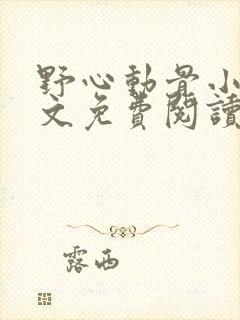 野心動骨小
文免費閱讀
露西